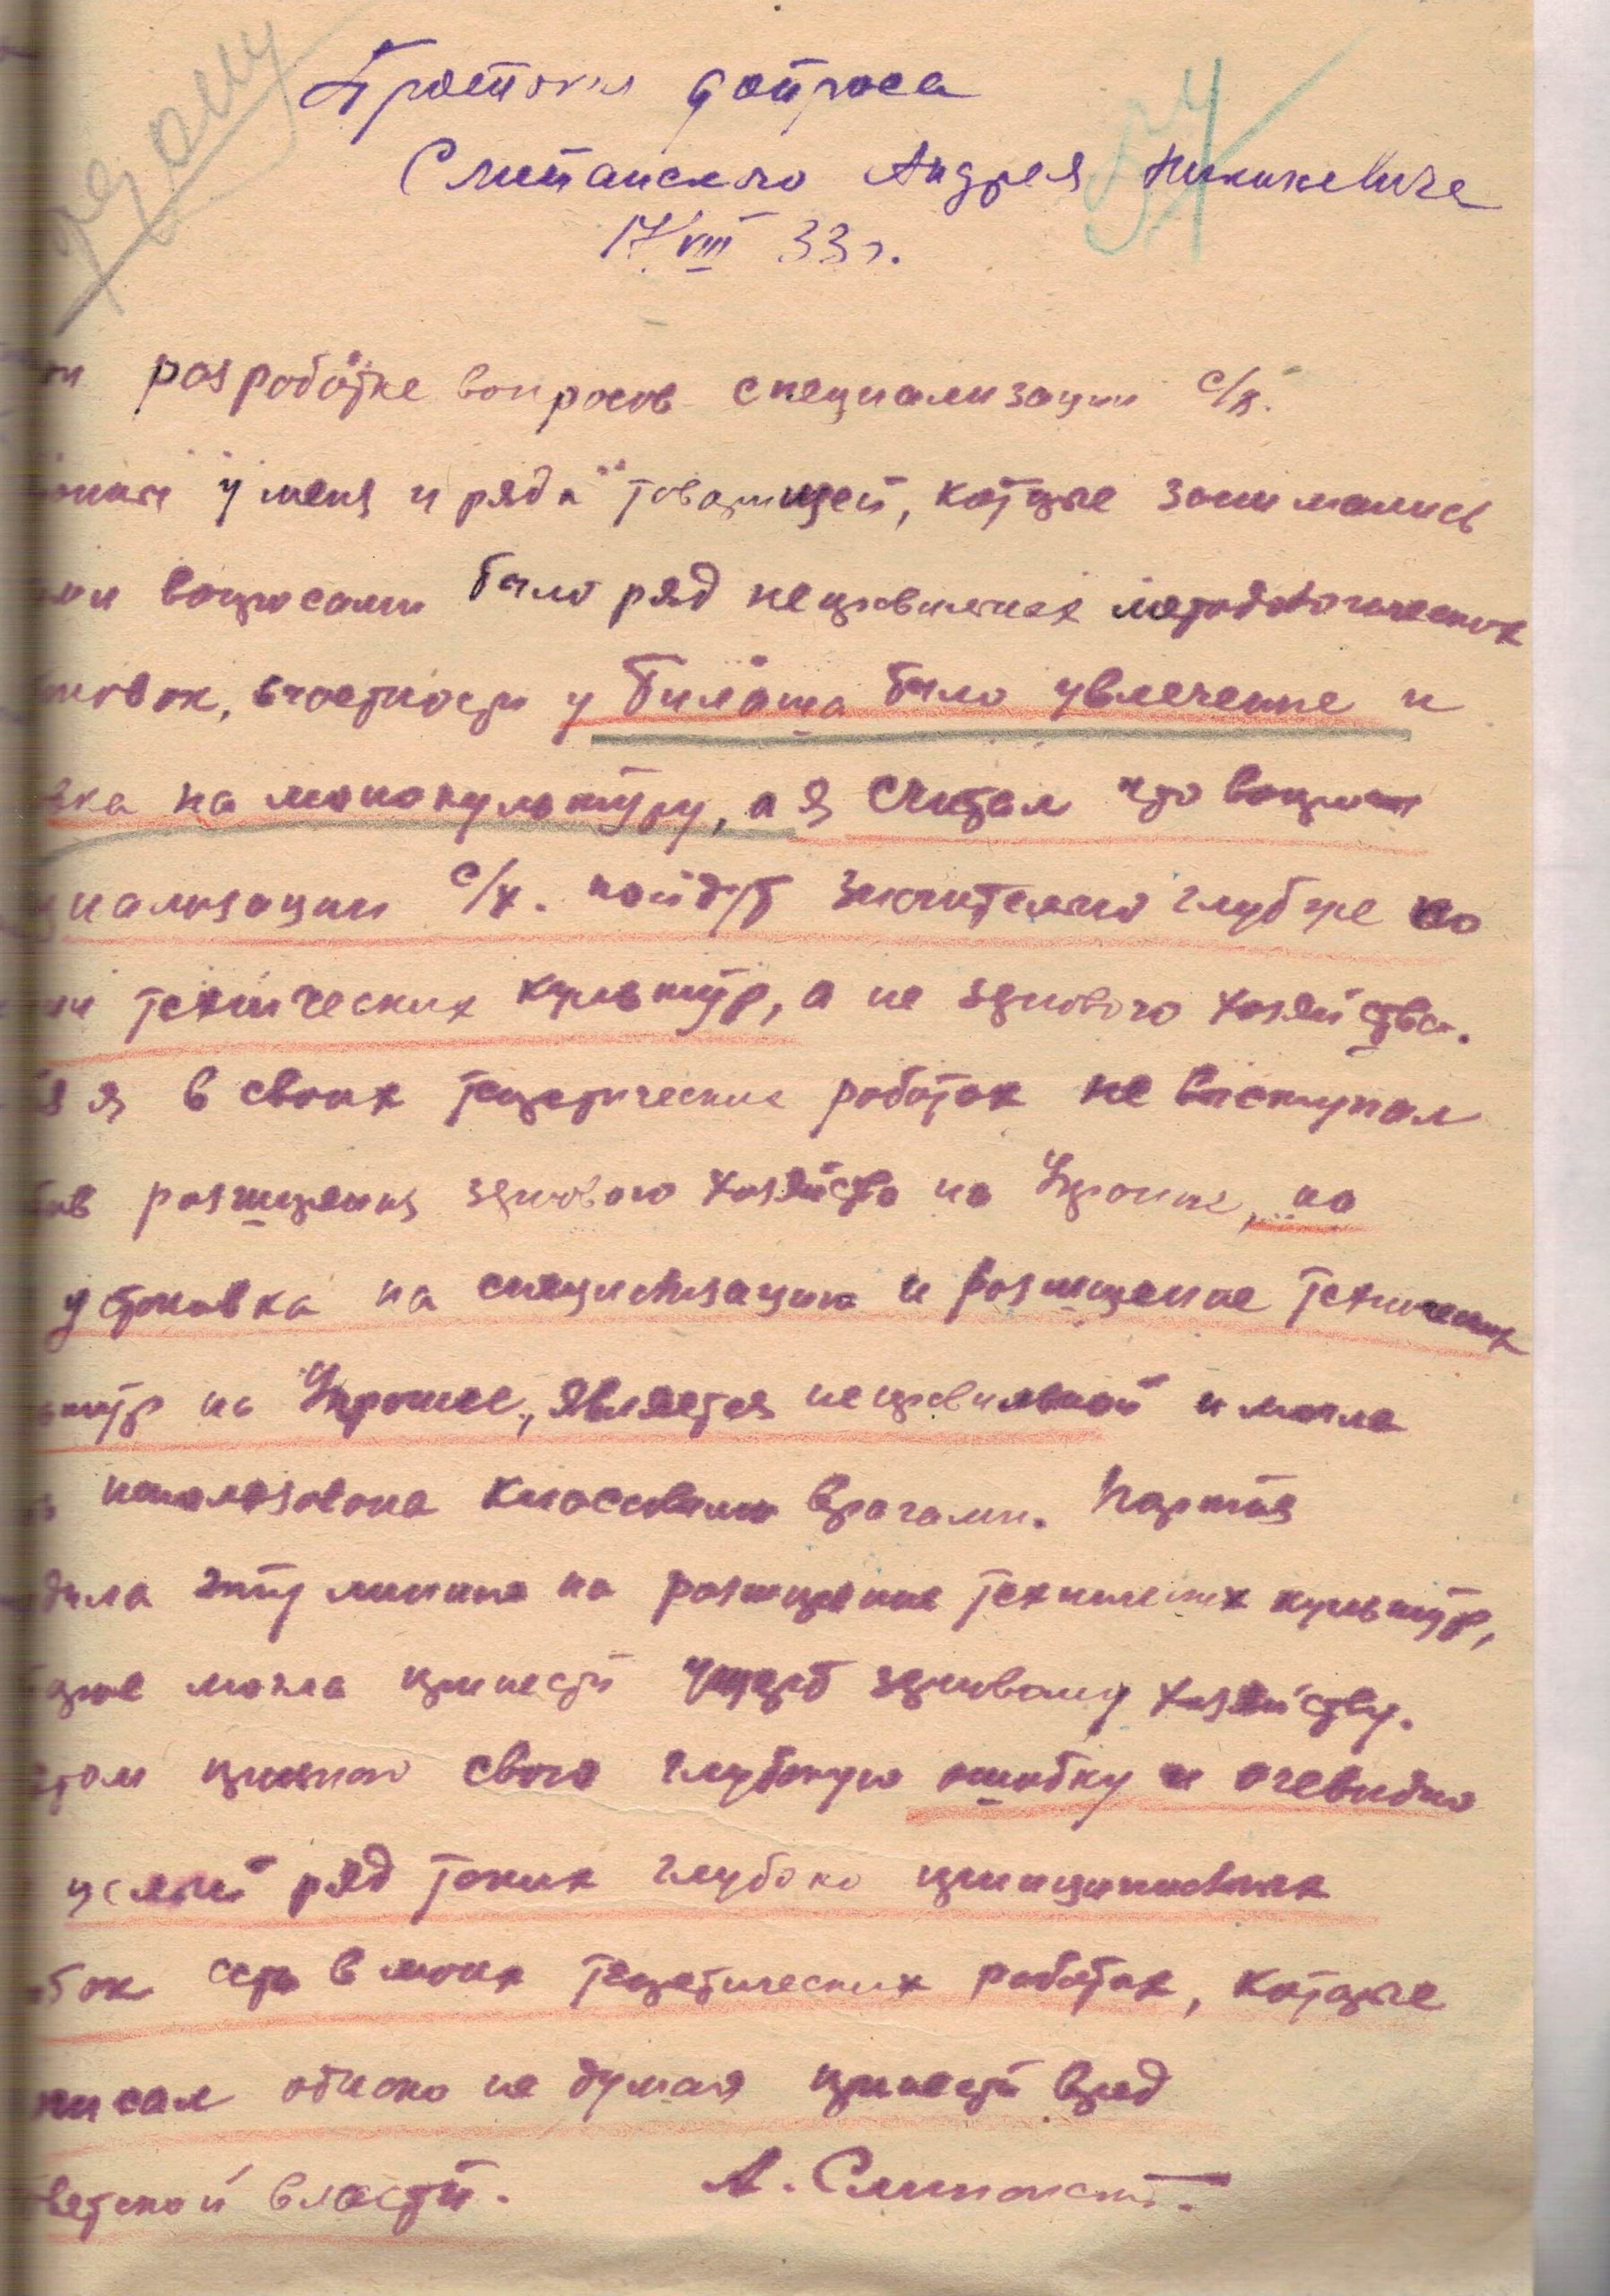 Протокол допроса
Слипанского Андрея
17/VIII 33 г.
розроботке вопросов специализации с/х.
у меня и ряда товарищей, которые занимались
вопросами было ряд неправильных методологических
вчастности у Билаша было увлечение и
на монокультуру, а я считал что вопросы
с/х. пойдут значительно глубже по
технических культур, а не зернового хозяйства.
я в своих теоретических роботах не выступал
розмищения зернового хозяйства на Украине, но
установка на специализацию и розмищение технических
на Украине, является неправильной и могла
использована классовыми врагами. Партия
эту линию на розмищение технических культур,
могла принести ущерб зерновому хозяйству.
признаю свою глубокую ошибку и очевидно
целый ряд таких глубоко принципиальных
есть в моих теоретических роботах, которые
писал однако не думая принести вред
власти. А. Слипанский.